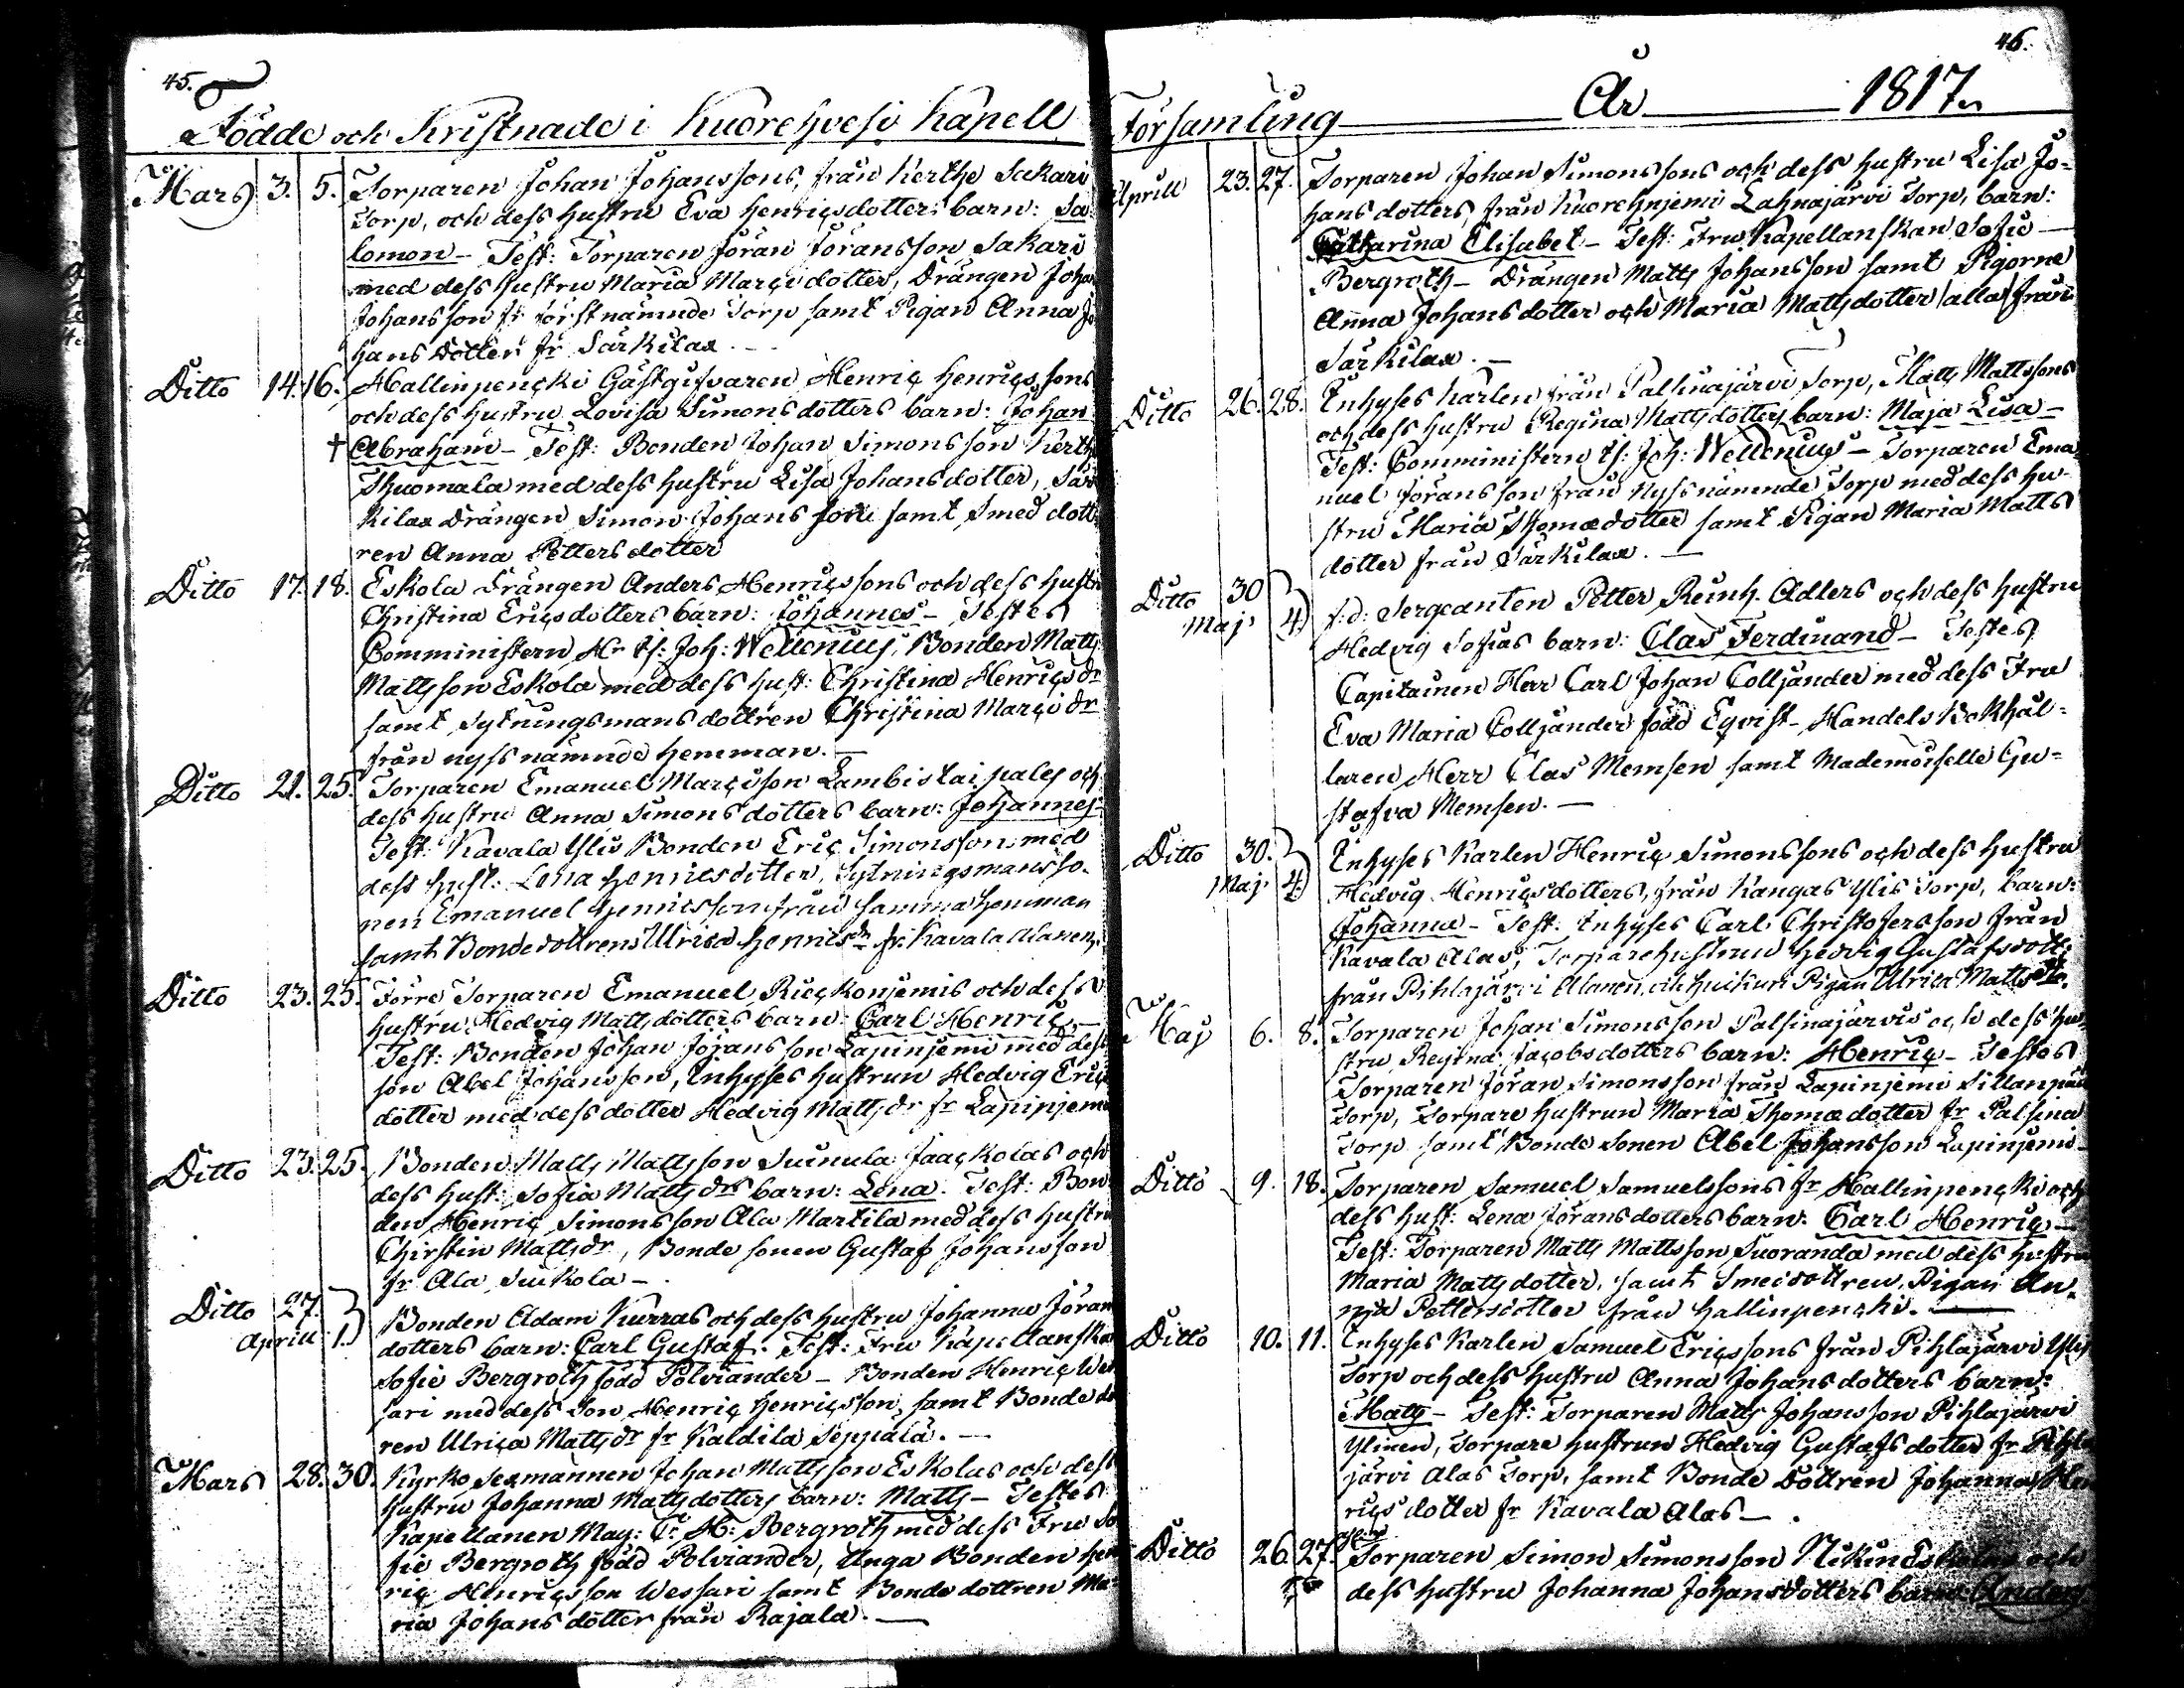 45.
Födde och Kristnade i Kuorehvesi Kapell
Mars 3. 5. Torparen Johan Johanssons, från Kerthe Sakari
Torp, och dess hustru Eva Henriçsdotters barn: Sa-
lomon - Test: Torparen Jöran Jöransson Sakari
med dess hustru Maria Marçidotter, Drängen Johan
Johansson fr. förstnämnde Torp samt Pigan Anna Jo
hans Dotter fr Särkilax. -
Ditto 14. 16. Hallinpençki Gästgifvaren Henriç Henriçssons
och dess hustru Lovisa Simons dotters barn: Johan
† Abraham - Test: Bonden Johan Simonsson Kerthe
Thuomala med dess hustru Lisa Johansdotter, Sär
kilax Drängen Simon Johansson samt Smed dott
ren Anna Petters dotter
Ditto 17. 18. Eskola Drängen Anders Henriçssons och dess hustru
Christina Eriçsdotters barn: Johannes - Testes
Comministern Hr Joh: Wellenius, Bonden Matts
Mattsson Eskola med dess hust: Christina Henriçs dr
samt Sytningsmans dottren Christina Marçi dr
från nyssnämnde hemman. -
Ditto 21. 25. Torparen Emanuel Marçisson Lambistaipales och
dess hustru Anna Simons dotters barn: Johannes -
Test: Kavala Ylis Bonden Eriç Simonsson med
dess hust: Lena Henricsdotter, Sytningsmansso-
nen Emanuel Henricsson från samma hemman
samt Bondedottren Ulrica Henricsdr fr. Kavala Alanen.
Ditto 23. 25. Förre Torparen Emanuel Rieçkonjemis och dess
hustru Hedvig Matts dotters barn: Carl Henriç -
Test: Bonden Johan Jöransson Lapinjemi med dess
son Abel Johansson, Inhyses hustrun Hedvig Eriçs
dotter med dess dotter Hedvig Mattsdr fr Lapinjemi
Ditto 23. 25. Bonden Matts Mattsson Suinula Jaaçkolas och
dess hust: Sofia Matts drs barn: Lena. Test: Bon
den Henriç Simonsson Ala Martila med dess hustru
Chirstin Matts dr, Bonde sonen Gustaf Johansson
fr Ala Suikola -
Ditto 27.
Aprill 1. Bonden Adam Kurras och dess hustru Johanna Jörans
dotters barn: Carl Gustaf. Test: Fru Kapellanskan
Sofie Bergroth född Polviander - Bonden Henriç Wes
sari med dess Son Henriç Henriçsson, samt Bonde dott
ren Ulriça Matts dr fr Kaldila Seppälä. -
Mars 28. 30. Kyrko Sexmannen Johan Mattsson Eskolas och dess
hustru Johanna Mattsdotters barn: Matts - Testes
Kapellanen Mag: C. H: Bergroth med dess Fru So
fie Bergroth född Polviander, Unga Bonden Hen
riç Henriçsson Wessari samt Bonde dottren Ma-
ria Johans dotter från Rajala. -
46.
Församling År 1817.
Aprill 23. 27. Torparen Johan Simonssons och dess hustru Lisa Jo-
hans dotters, från Kuorehnjemi Lahnajärvi Torp, barn:
Catharina Elisabet - Test: Fru Kapellanskan Sofie
Bergroth - Drängen Matts Johansson samt Pigorne
Anna Johans dotter och Maria Mattsdotter /alla/ från
Särkilax. -
Ditto 26. 28. Inhyses Karlen från Palsinajärvi Torp, Matts Mattssons
och dess hustru Regina Mattsdotters barn: Maja Lisa -
Test: Comministern Joh: Wellenius - Torparen Ema-
nuel Jöransson från Nyssnämnde Torp med dess hu-
stru Maria Thomædotter samt Pigan Maria Matts
dotter från Särkilax. -
Ditto 30
Maj 4. f:d: Sergeanten Petter Reinh. Adlers och dess hustru
Hedvig Sofias barn: Clas Ferdinand - Testes
Capitainen Herr Carl Johan Colljander med dess Fru
Eva Maria Colljander född Eqvist - Handels Bokhål-
laren Herr Clas Memsen samt Mademoiselle Gu-
stafva Memsen. -
Ditto 30.
Maj 4. Inhyses Karlen Henriç Simonssons och dess hustru
Hedvig Henriçsdotters, från Kangas Ylis Torp, barn:
Johanna - Test: Inhyses Carl Christofersson från
Kavala Alas, Torparehustrun Hedvig Gustafsdott.
från Pihlajärvi Alanen, och Huikuri Pigan Ulrica Matts dr.
Maj 6. 8. Torparen Johan Simonsson Palsinajärvis och dess hu-
stru Regina Jacobsdotters barn: Henriç - Testes
Torparen Jöran Simonsson från Lapinjemi Sillanpää
Torp, Torpare hustrun Maria Thomædotter fr Palsina
Torp samt Bonde Sonen Abel Johansson Lapinjemi -
Ditto 9. 18. Torparen Samuel Samuelssons fr Hallinpençki och
dess hust: Lena Jöransdotters barn: Carl Henriç -
Test: Torparen Matts Mattsson Suoranda med dess hustru
Maria Mattsdotter, samt Smedsdottren, Pigan An-
na Pettersdotter från Hallinpençki. -
Ditto 10. 11. Inhyses Karlen Samuel Eriçssons från Pihlajärvi Ylis
Torp och dess hustru Anna Johansdotters barn:
Matts - Test: Torparen Matts Johansson Pihlajärvi
Ylinen, Torpare hustrun Hedvig Gustafs dotter fr Pihla
järvi Alas Torp, samt Bonde Dottren Johanna Hen
riçs dotter fr Kavala Alas - .
Ditto 26. 27. Torparen Simon Simonsson Nikun Eskolas och
dess hustru Johanna Johansdotters barn: Anders